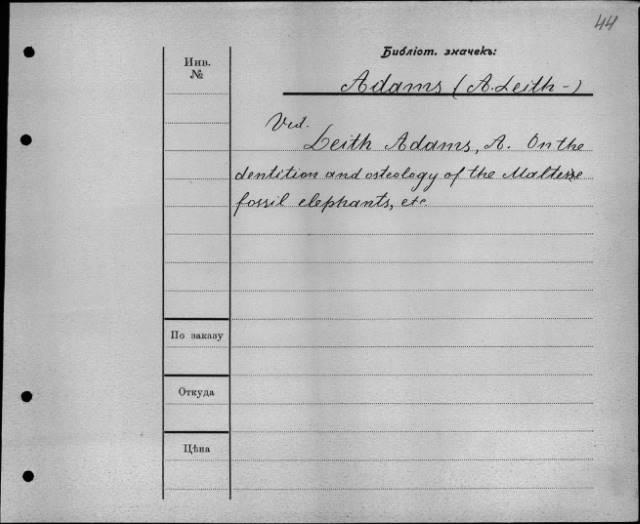 44
Библіот. значекъ:
Инв.
№
Adams (A. Leith-)
Vid.
Leith Adams, A. On the
dentition and osteology of the Maltese
fossil elephants, etc.
По заказу
Откуда
Цѣна